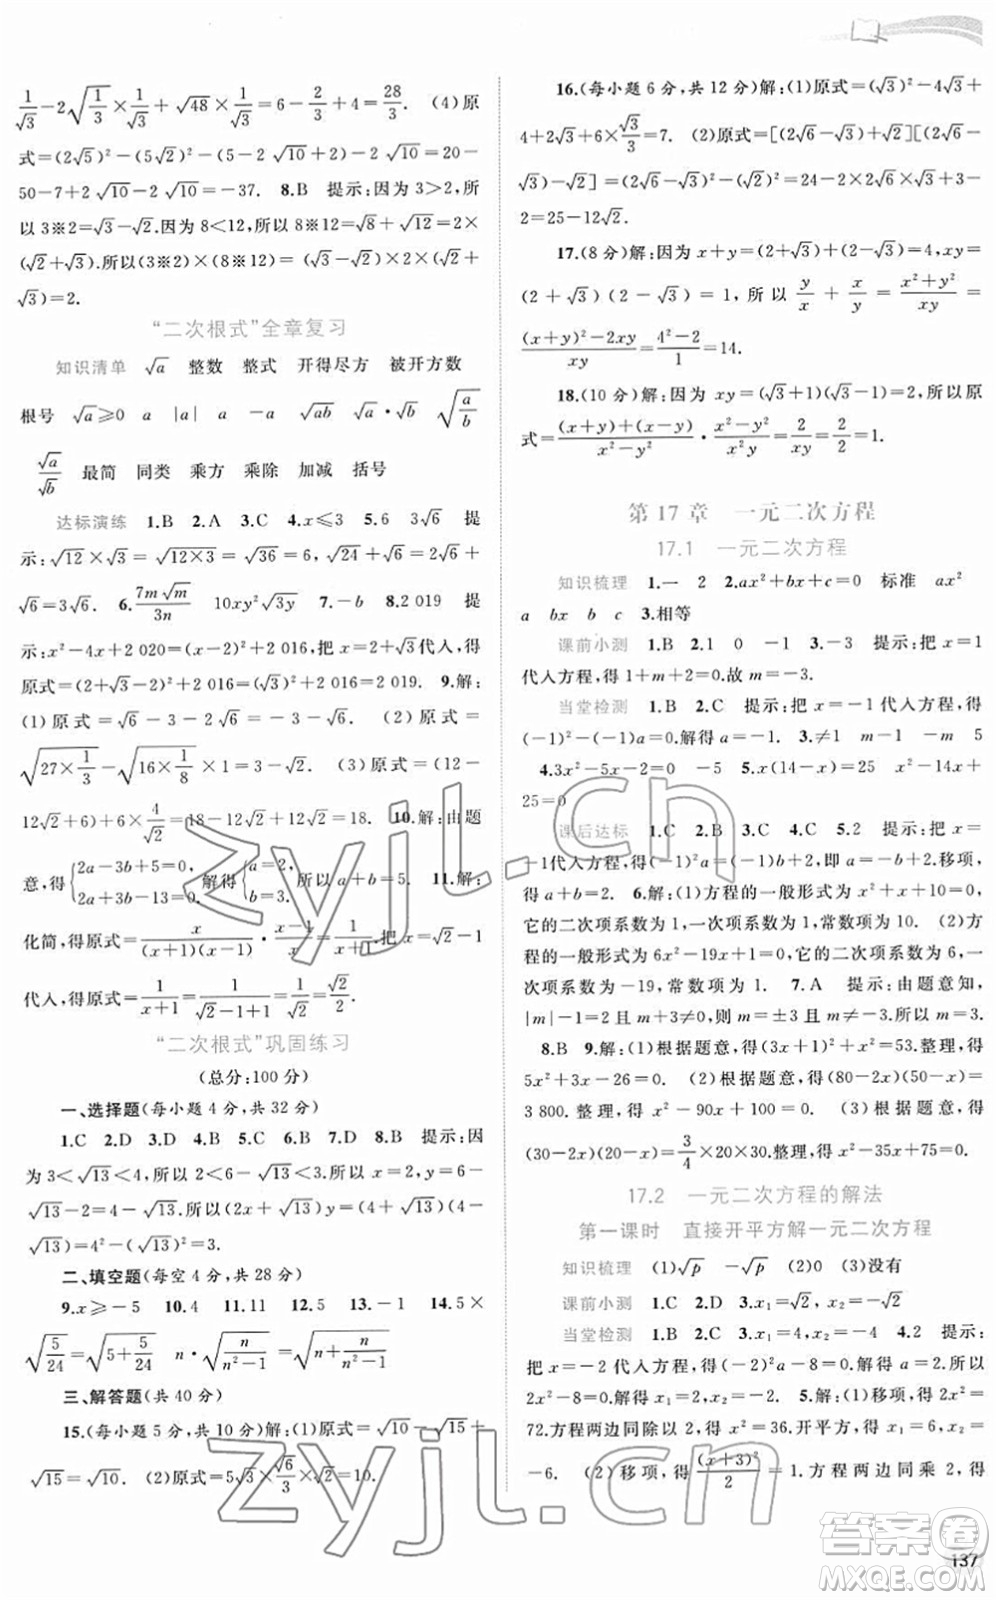 1/√3-2√(1/3)×1/√3+√48×1/√3=6-2/3+4=28/3. (4)原
式=(2√5)²-(5√2)²-(7+2√10-2√10+2)... 
-50-7+2√10-2√10=-37. 8.B 提示:因为 3>2,所
以 3※2=√3-√2.因为 8<12,所以 8※12=√8+√12=2×
(√2+√3).所以(3※2)×(8※12)=(√3-√2)×2×(√2+
√3)=2.
“二次根式”全章复习
知识清单 √a 整数 整式 开得尽方 被开方数
根号 √a≥0 a |a| a -a √ab √a·√b √(a/b)
√a/√b 最简 同类 乘方 乘除 加减 括号
达标演练 1.B 2.A 3.C 4.x≤3 5.6 3√6 提
示:√12×√3=√(12×3)=√36=6, √24+√6=2√6+
√6=3√6. 6.7m√m/3n 10xy²√3y 7.-b 8.2 019 提
示:x²-4x+2 020=(x-2)²+2 016,把 x=2+√3代入,得
原式=(2+√3-2)²+2 016=(√3)²+2 016=2 019. 9.解:
(1)原式=√6-3-2-√6=-5. (2)原式=
√(27×1/3)-√(16×1/8×1/2)=3-1=2. (3)原式=(12-
12√2+6)+6×4/√2=18-12√2+12√2=18. 10.解:由题
意,得{2a-3b+5=0, 2a+3b-13=0. 解得{a=2, b=3. 所以 a+b=5. 11.解:
“二次根式”巩固练习
(总分:100 分)
一、选择题(每小题 4 分,共 32 分)
1.C 2.D 3.D 4.B 5.C 6.B 7.D 8.B 提示:因
为 3<√13<4,所以 2<6-√13<3,所以 x=2,y=6-
√13-2=4-√13,所以(2x+√13)y=(4+√13)(4-
√13)=4²-(√13)²=3.
二、填空题(每空 4 分,共 28 分)
9.x≥-5 10.4 11.11 12.5 13.-1 14.5×
√(5/24)=√(5+5/24) n·√(n/(n²-1))=√(n+n/(n²-1))
三、解答题(共 40 分)
15.(每小题 5 分,共 10 分)解:(1)原式=√10-√15+
√15=√10. (2)原式=5√3×√6/3×√2=10.
16.(每小题 6 分,共 12 分)解:(1)原式=(√3)²-4√3+
4+2√3+6×√3/3=7. (2)原式=[(2√6-√3)+√2][(2√6-
√3)-√2]=(2√6-√3)²-(√2)²=24-2×2√6×√3+3-
2=25-12√2.
17.(8分)解:因为 x+y=(2+√3)+(2-√3)=4,xy=
(2+√3)(2-√3)=1,所以 y/x+x/y=(x²+y²)/xy=
((x+y)²-2xy)/xy=(4²-2)/1=14.
18.(10 分)解:因为 xy=(√3+1)(√3-1)=2,所以原
式=((x+y)+(x-y))/(x²-y²)·(x²-y²)/x²y=2/xy=2/2=1.
第 17 章 一元二次方程
17.1 一元二次方程
知识梳理 1.一 2 2.ax²+bx+c=0 标准 ax²
a bx b c 3.相等
课前小测 1.B 2.1 0 -1 3.-3 提示:把 x=1
代入方程,得 1+m+2=0.故 m=-3.
当堂检测 1.B 2.C 提示:把 x=-1 代入方程,得
(-1)²-(-1)+2a=0.解得 a=-1. 3.≠1 m-1 -m 5
4.3x²-5x-2=0 -5 5.x(14-x)=25 x²-14x+
25=0
课后达标 1.C 2.B 3.C 4.C 5.2 提示:把 x=
它的二次项系数为 1,一次项系数为 1,常数项为 10. (2)方
程的一般形式为 6x²-19x+1=0,它的二次项系数为 6,一
次项系数为-19,常数项为 1. 7.A 提示:由题意知,
|m|-1=2 且 m+3≠0.所以 m=±3 且 m≠-3.所以 m=3.
8.B 9.解:(1)根据题意,得(3x+1)²+x²=53.整理,得
5x²+3x-26=0. (2)根据题意,得(80-2x)(50-2x)=
3 800.整理,得 x²-90x-200... (3)根据题意,得
(30-2x)(20-x)=3/4×20×30.整理,得 x²-35x+75=0.
17.2 一元二次方程的解法
第一课时 直接开平方解一元二次方程
知识梳理 (1)√p -√p (2)0 (3)没有
课前小测 1.C 2.D 3.x₁=√2,x₂=-√2
当堂检测 1.B 2.C 3.x₁=4,x₂=-4 4.2 提示:
把 x=-2 代入方程,得(-2)²a-8=0.解得 a=2.所以
2x²-8=0.所以 x=±2. 5.解:(1)移项,得 2x²=
72.方程两边同除以 2,得 x²=36.开平方,得 x₁=6,x₂=
-6. (2)移项,得(x+3)²/2=1.方程两边同乘 2,得
zyjl.cn
zyjl.cn
答案圈
MXQE.COM
137